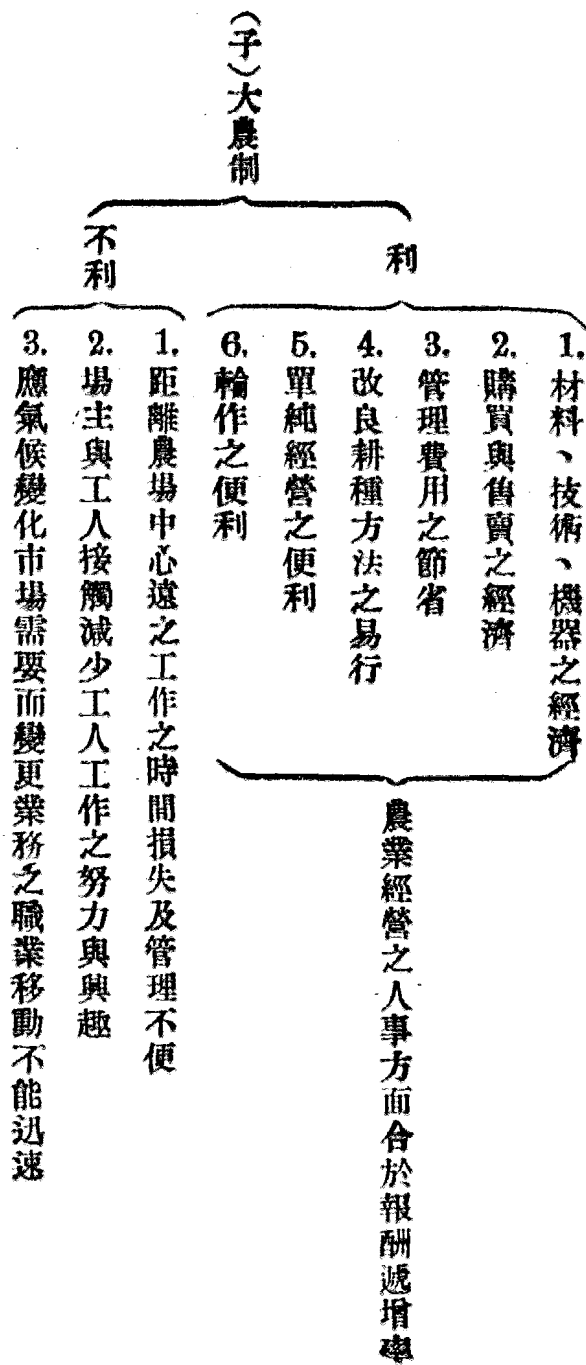 （子）大農制
利
1. 材料、技術、機器之經濟
2. 購買與售賣之經濟
3. 管理費用之節省
4. 改良耕種方法之易行
5. 單純經營之便利
6. 輪作之便利
農業經營之人事方面合於報酬遞增率
不利
1. 距離農場中心遠之工作之時間損失及管理不便
2. 場主與工人接觸減少工人工作之努力與興趣
3. 應氣候變化市場需要而變更業務之職業移動不能迅速